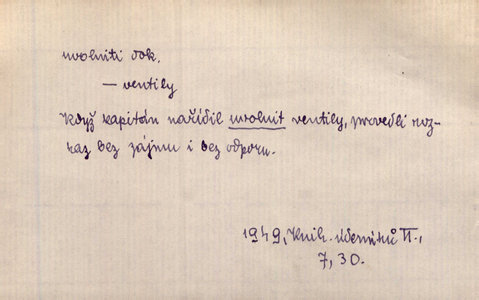 uvolniti dok.
— ventily
Když kapitán nařídil uvolnit ventily, provedli roz-
kaz bez zájmu i bez odporu.
1949, Knih. učenců II.,
7, 30.